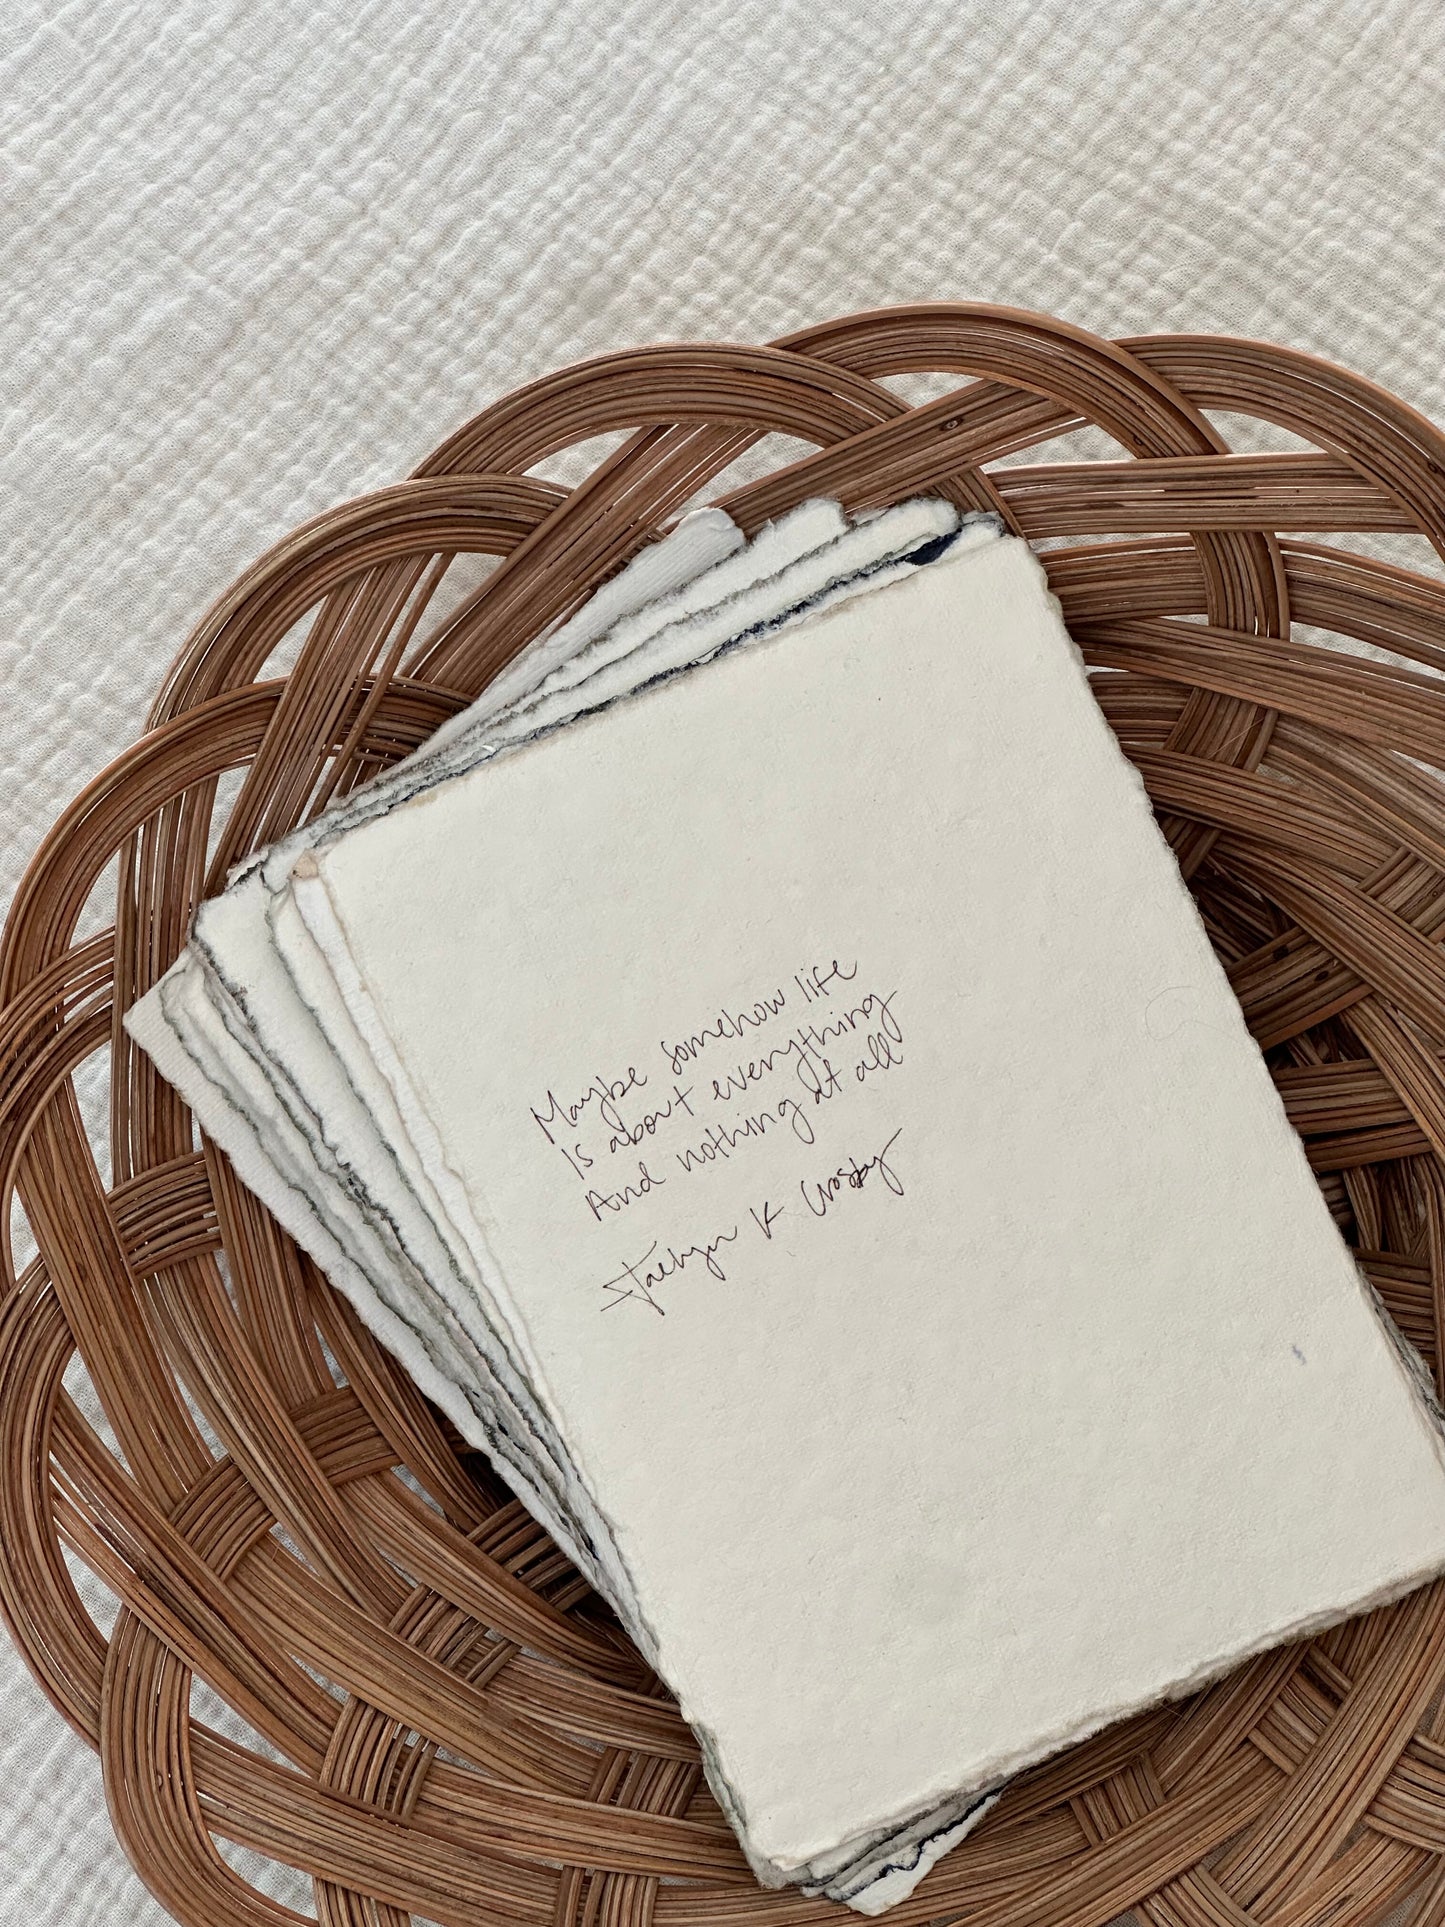 Maybe somehow life
Is about everything
And nothing at all
K Crosby